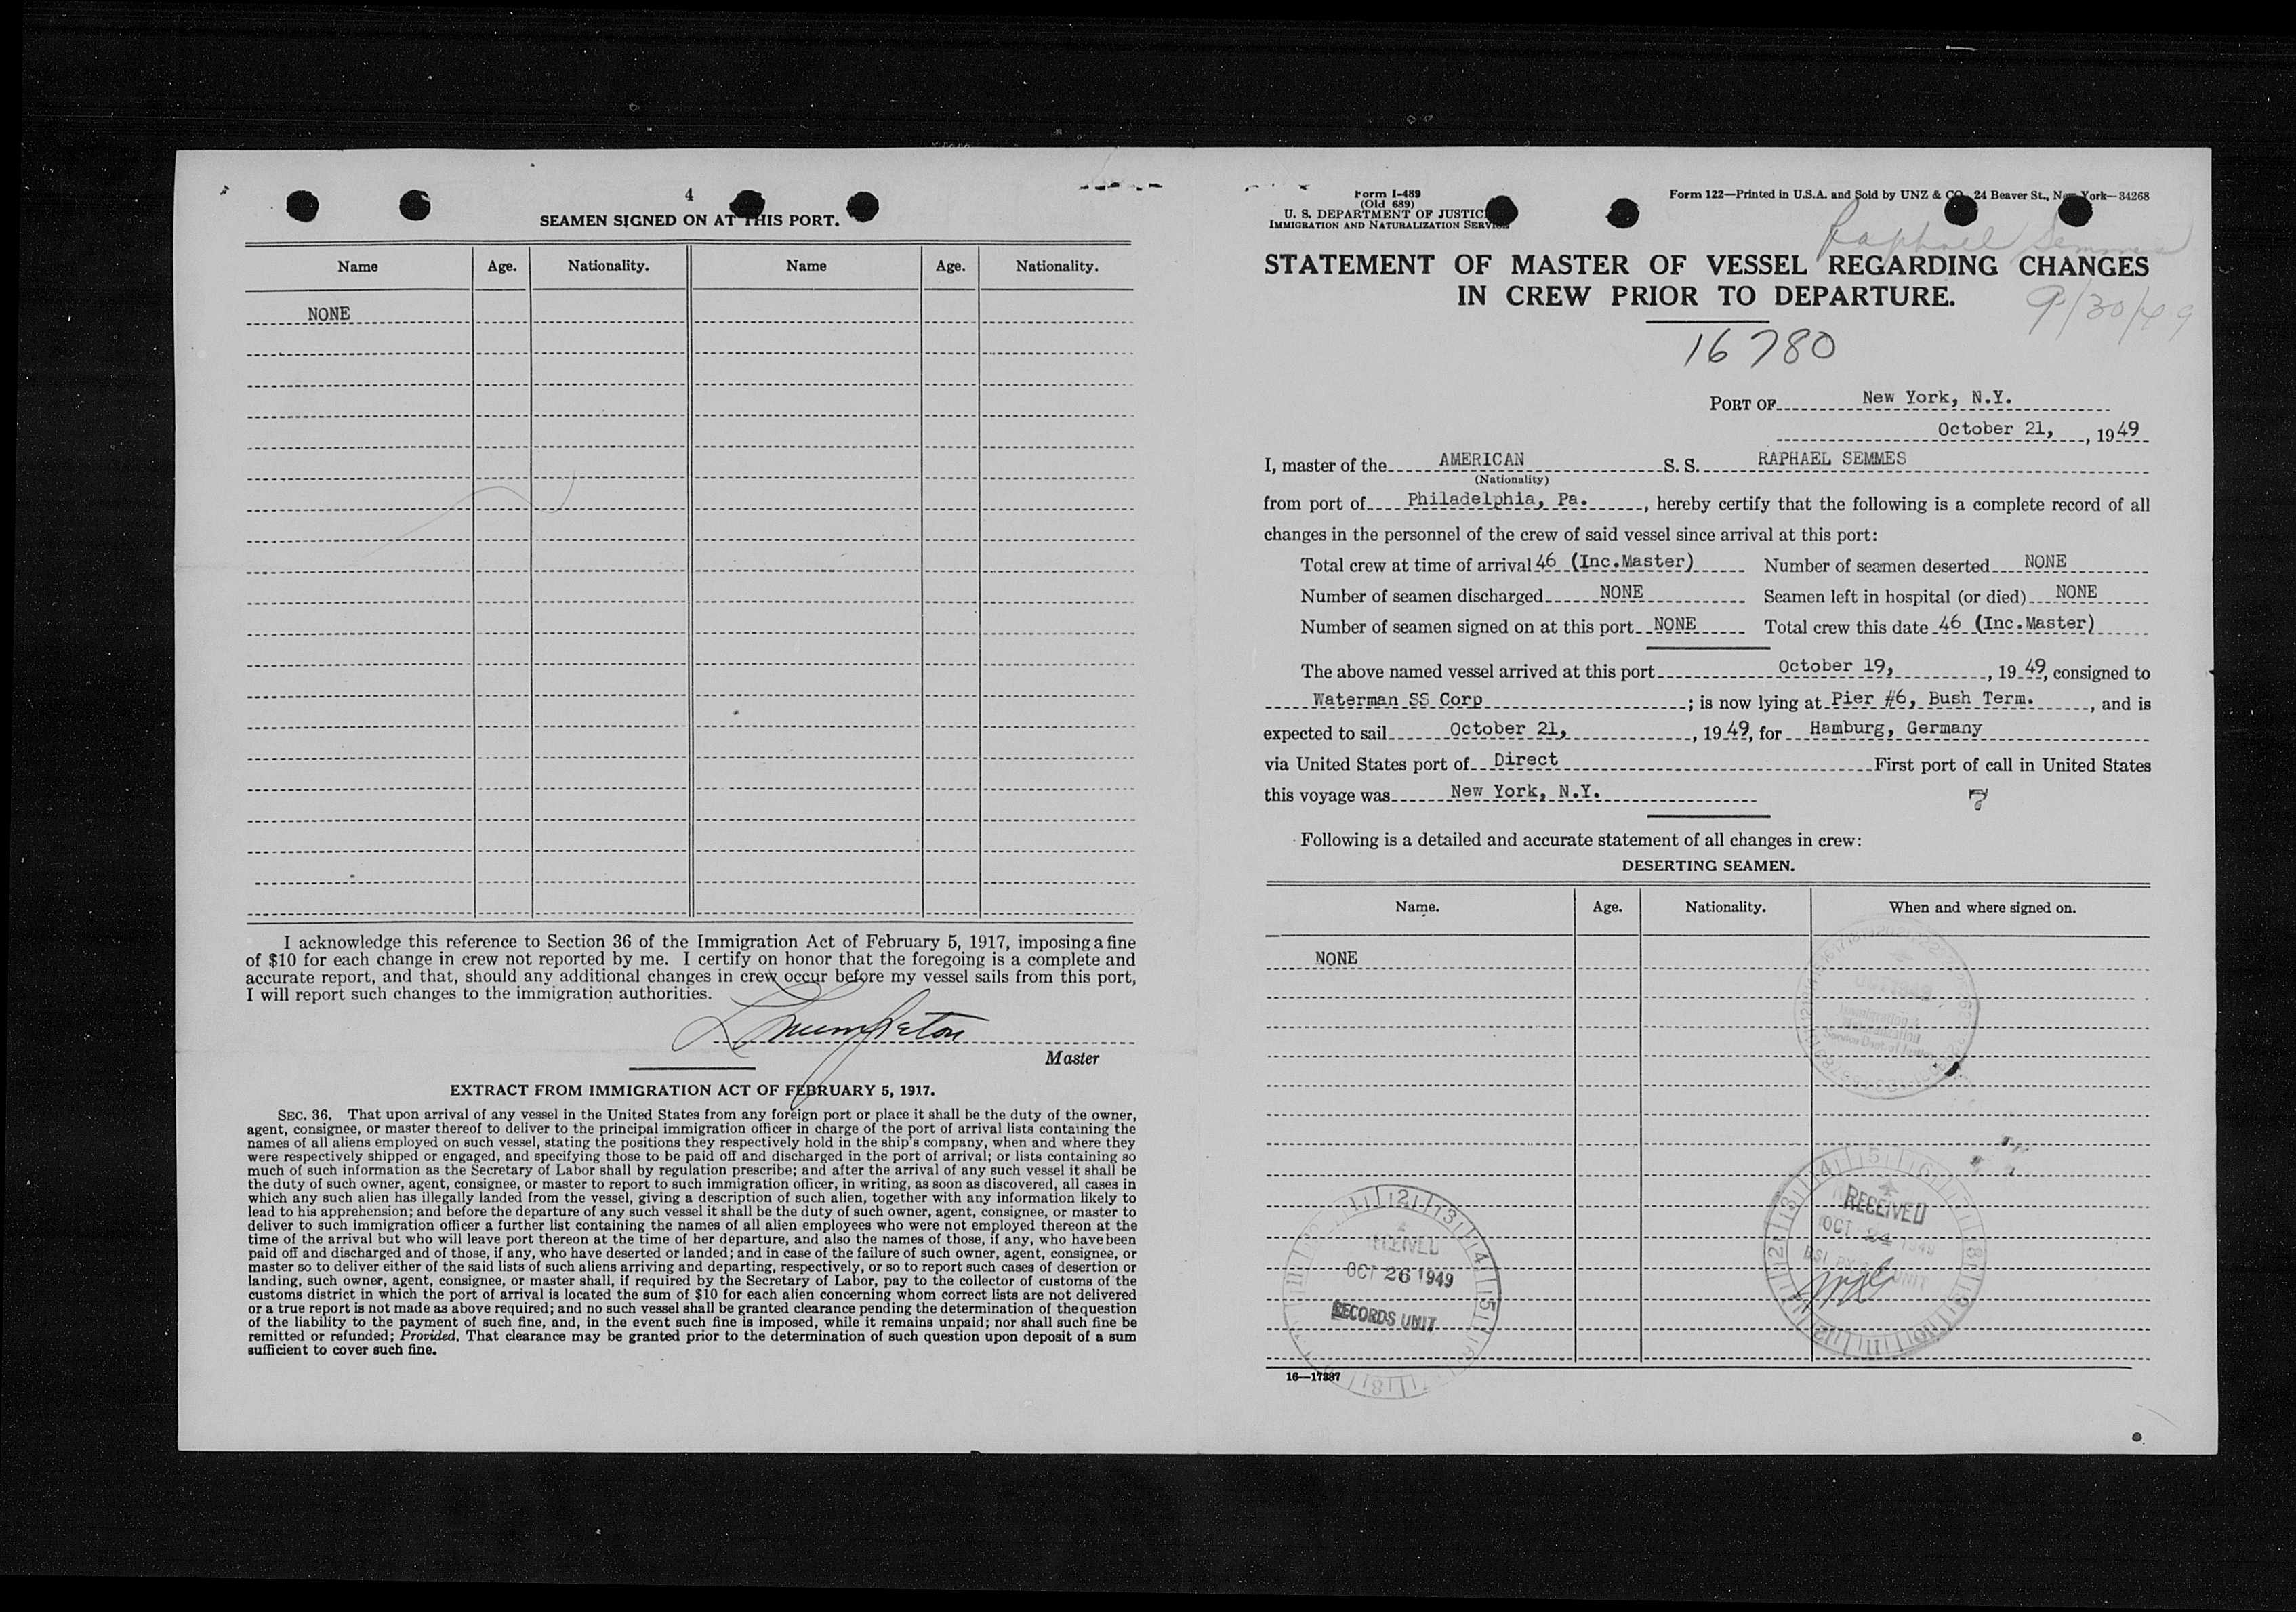 4
SEAMEN SIGNED ON AT THIS PORT.
Name Age. Nationality. Name Age. Nationality.
NONE
I acknowledge this reference to Section 36 of the Immigration Act of February 5, 1917, imposing a fine
of $10 for each change in crew not reported by me. I certify on honor that the foregoing is a complete and
accurate report, and that, should any additional changes in crew occur before my vessel sails from this port,
I will report such changes to the immigration authorities.
Master
EXTRACT FROM IMMIGRATION ACT OF FEBRUARY 5, 1917.
SEC. 36. That upon arrival of any vessel in the United States from any foreign port or place it shall be the duty of the owner,
agent, consignee, or master thereof to deliver to the principal immigration officer in charge of the port of arrival lists containing the
names of all aliens employed on such vessel, stating the positions they respectively hold in the ship's company, when and where they
were respectively shipped or engaged, and specifying those to be paid off and discharged in the port of arrival; or lists containing so
much of such information as the Secretary of Labor shall by regulation prescribe; and after the arrival of any such vessel it shall be
the duty of such owner, agent, consignee, or master to report to such immigration officer, in writing, as soon as discovered, all cases in
which any such alien has illegally landed from the vessel, giving a description of such alien, together with any information likely to
lead to his apprehension; and before the departure of any such vessel it shall be the duty of such owner, agent, consignee, or master to
deliver to such immigration officer a further list containing the names of all alien employees who were not employed thereon at the
time of the arrival but who will leave port thereon at the time of her departure, and also the names of those, if any, who have been
paid off and discharged and of those, if any, who have deserted or landed; and in case of the failure of such owner, agent, consignee, or
master so to deliver either of the said lists of such aliens arriving and departing, respectively, or so to report such cases of desertion or
landing, such owner, agent, consignee, or master shall, if required by the Secretary of Labor, pay to the collector of customs of the
customs district in which the port of arrival is located the sum of $10 for each alien concerning whom correct lists are not delivered
or a true report is not made as above required; and no such vessel shall be granted clearance pending the determination of the question
of the liability to the payment of such fine, and, in the event such fine is imposed, while it remains unpaid; nor shall such fine be
remitted or refunded; Provided, That clearance may be granted prior to the determination of such question upon deposit of a sum
sufficient to cover such fine.
Form I-489
(Old 689)
U. S. DEPARTMENT OF JUSTICE
IMMIGRATION AND NATURALIZATION SERVICE
Form 122—Printed in U.S.A. and Sold by UNZ & CO., 24 Beaver St., New York—34268
Raphael Semmes
STATEMENT OF MASTER OF VESSEL REGARDING CHANGES
IN CREW PRIOR TO DEPARTURE.
9/30/49
16780
PORT OF New York, N.Y.
October 21, , 1949
I, master of the AMERICAN S. S. RAPHAEL SEMMES
(Nationality)
from port of Philadelphia, Pa. , hereby certify that the following is a complete record of all
changes in the personnel of the crew of said vessel since arrival at this port:
Total crew at time of arrival 46 (Inc.Master) Number of seamen deserted NONE
Number of seamen discharged NONE Seamen left in hospital (or died) NONE
Number of seamen signed on at this port NONE Total crew this date 46 (Inc.Master)
The above named vessel arrived at this port October 19, , 1949, consigned to
Waterman SS Corp ; is now lying at Pier #6, Bush Term. , and is
expected to sail October 21, , 1949, for Hamburg, Germany
via United States port of Direct First port of call in United States
this voyage was New York, N.Y.
7
Following is a detailed and accurate statement of all changes in crew:
DESERTING SEAMEN.
Name. Age. Nationality. When and where signed on.
NONE
Immigration &
Naturalization
Service Dept. of Justice
RECEIVED
OCT 24 1949
UNIT
RECEIVED
OCT 26 1949
RECORDS UNIT
16—17337